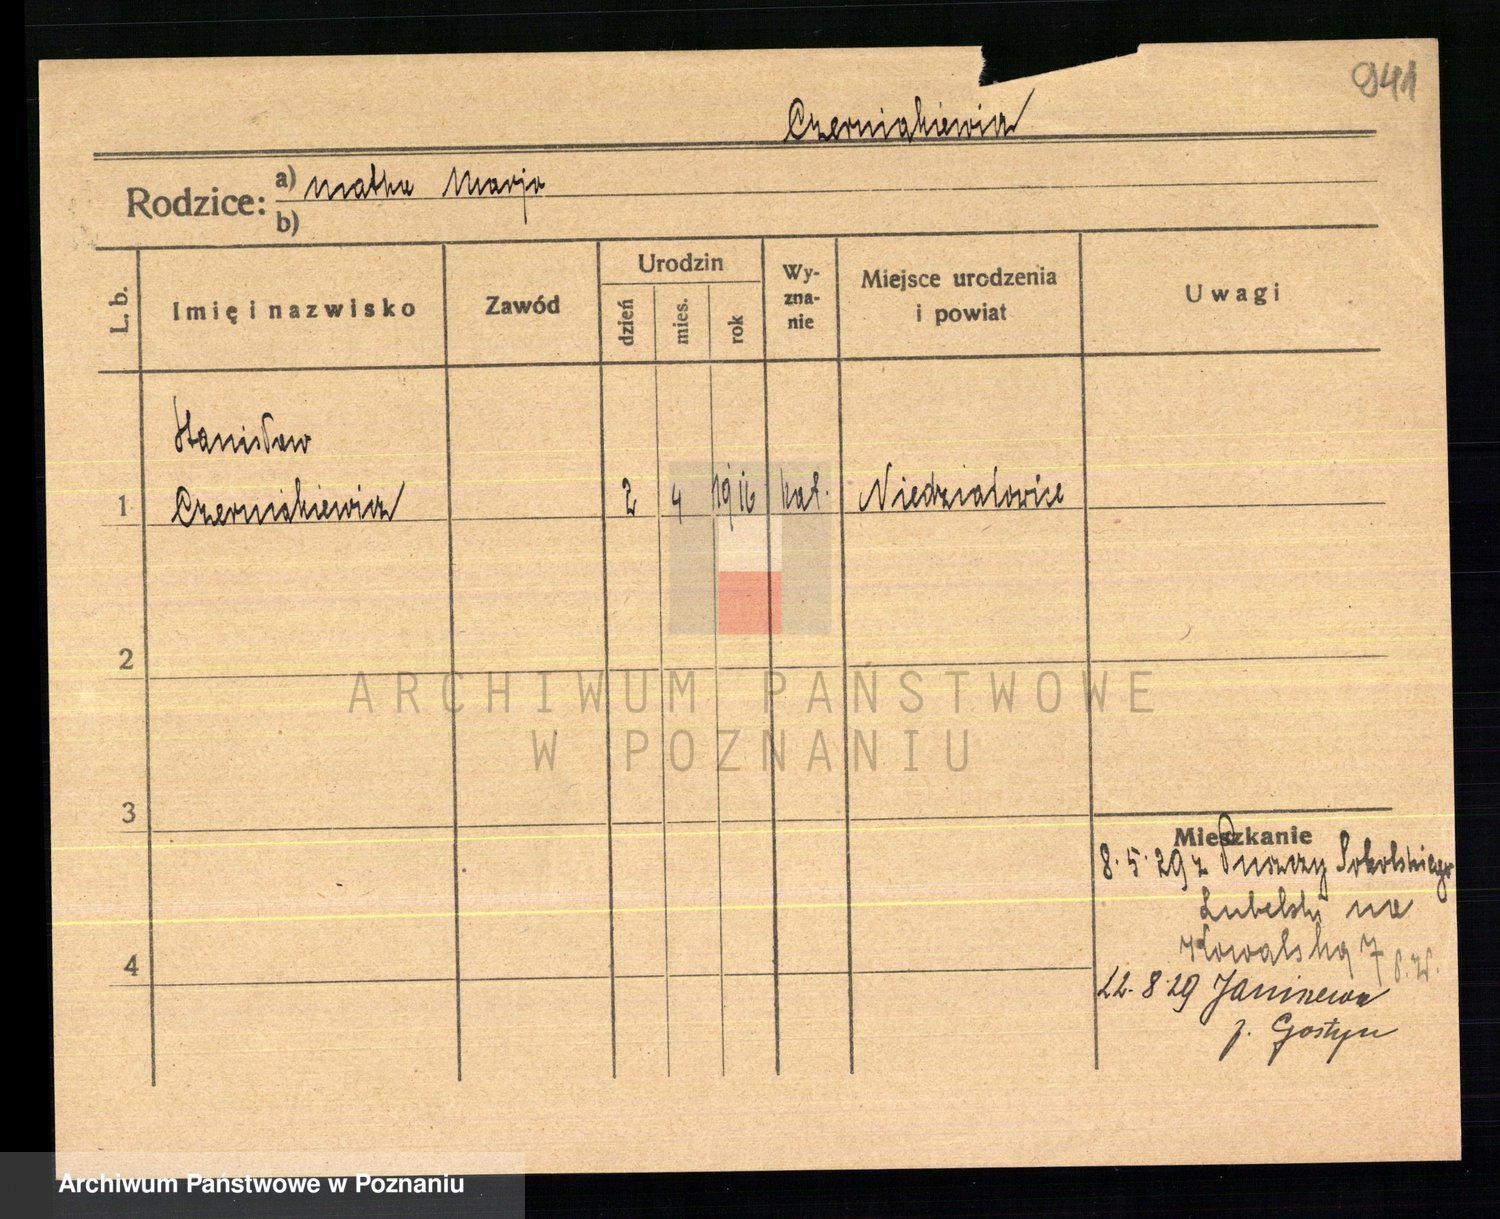 941
Czerniakiewicz
Rodzice: a) matka Marja
b)
L. b.
Imię i nazwisko
Zawód
Urodzin
dzień
mies.
rok
Wy-
zna-
nie
Miejsce urodzenia
i powiat
Uwagi
Stanisław
1 Czerniakiewicz 2 4 1916 kat. Niedziałowice
2
3
4
Mieszkanie
8.5.29 z Puszczy Sokolskiego
Lubelski na
Kowalską 7
22.8.29 Janiszewa
p. Gostyn
ARCHIWUM PAŃSTWOWE
W POZNANIU
Archiwum Państwowe w Poznaniu